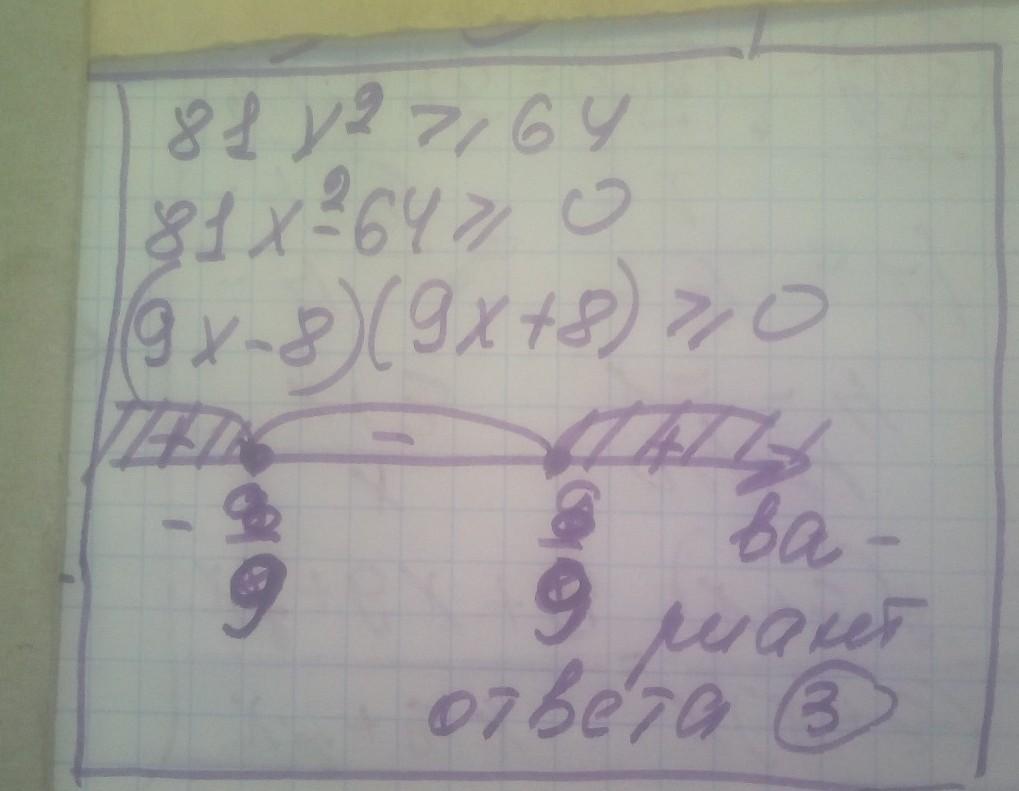 81x² ⩾ 64
81x²-64 ⩾ 0
(9x-8)(9x+8) ⩾ 0
+ - + x
-8/9 8/9 ва-
риант
ответа 3